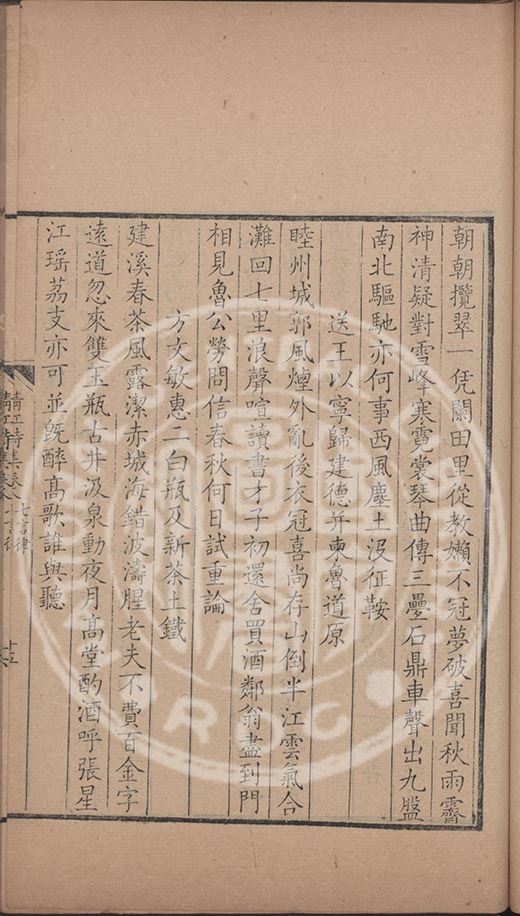 朝朝攬翠一凭闌田里從教嬾不冠夢破喜聞秋雨霽
神清疑對雪峰寒霓裳琴曲傳三疊石鼎車聲出九盤
南北驅馳亦何事西風塵土沒征鞍
送王以寧歸建德并柬魯道原
睦州城郭風煙外亂後衣冠喜尚存山倒半江雲氣合
灘回七里浪聲喧讀書才子初還舍買酒鄰翁盡到門
相見魯公勞問信春秋何日試重論
方文敏惠二白瓶及新茶土鐵
建溪春茶風露潔赤城海錯波濤腥老夫不費百金字
遠道忽來雙玉瓶古井汲泉動夜月高堂酌酒呼張星
江瑶荔支亦可並既醉高歌誰與聽
七言律
十五